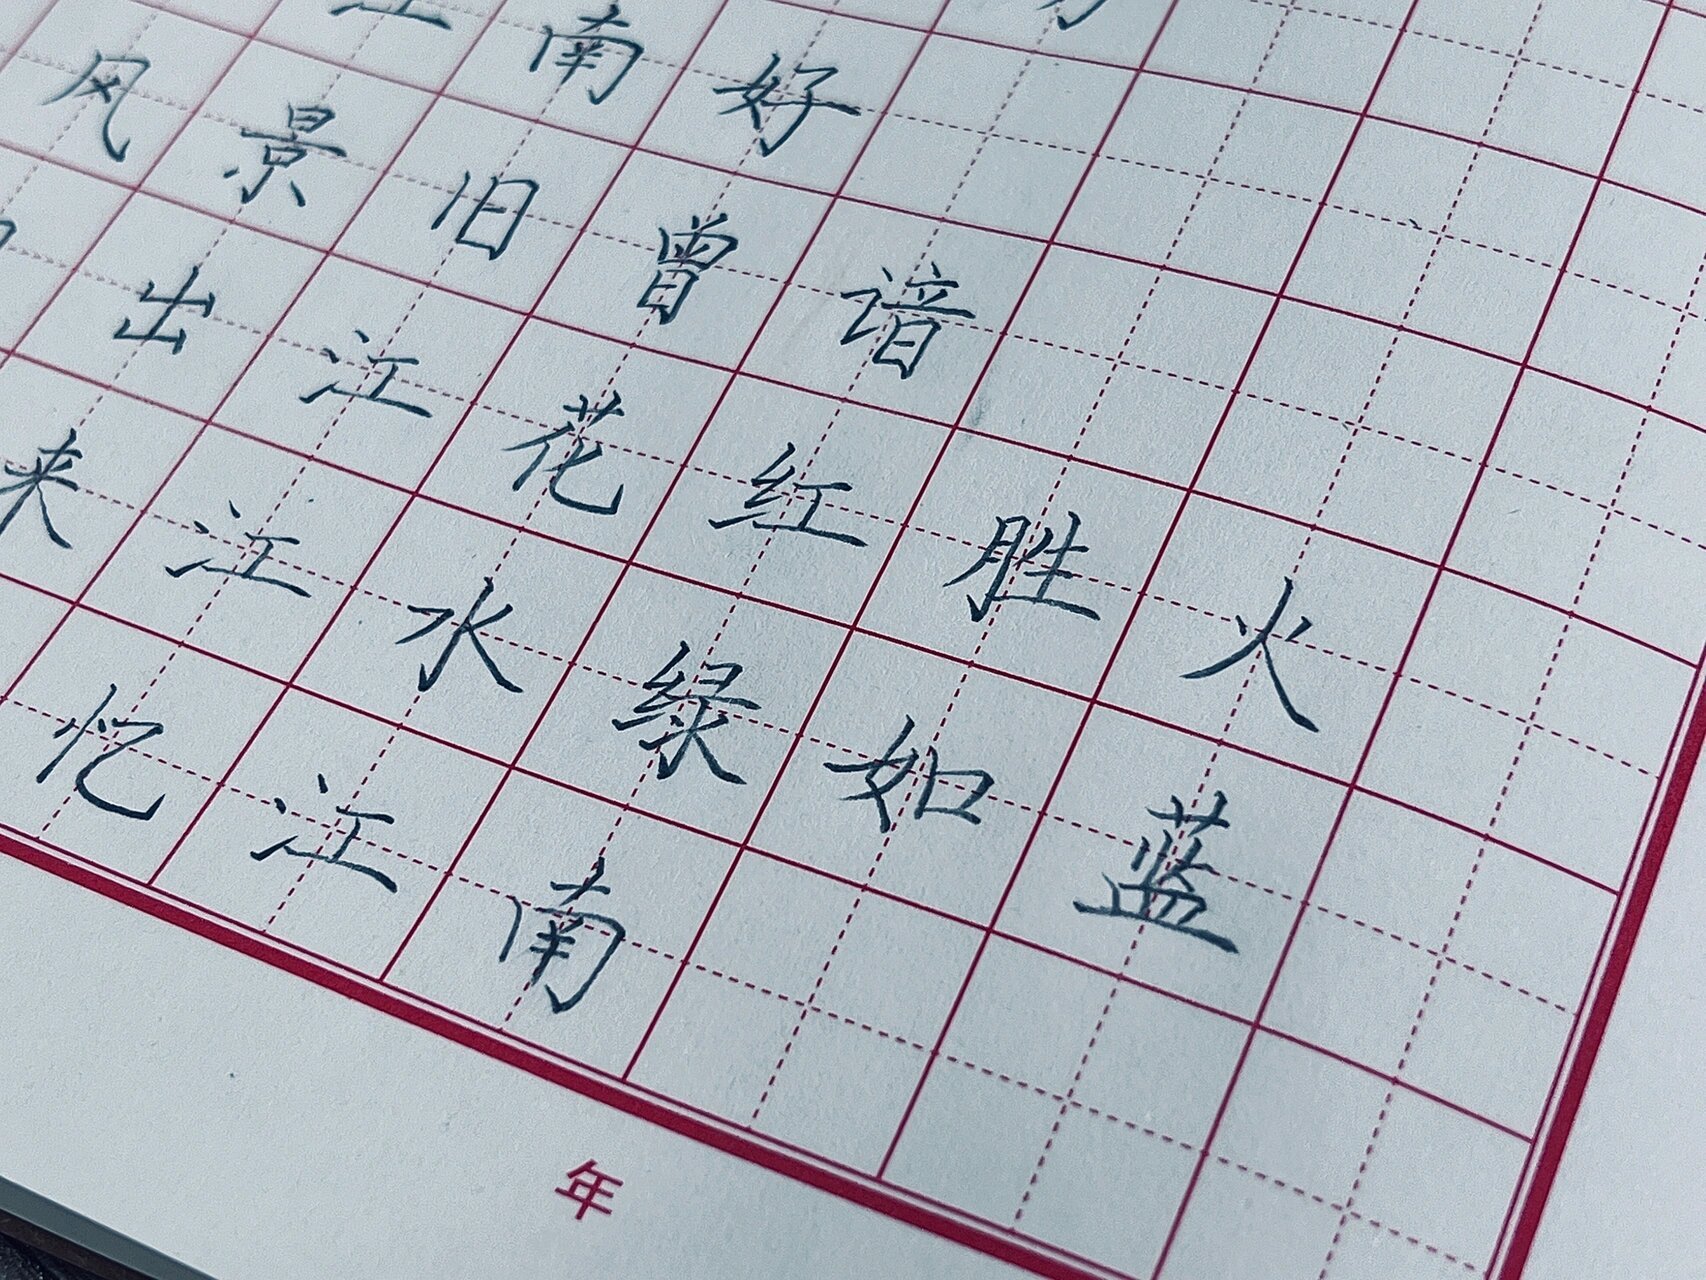 江南好
风景旧曾谙
出江花红胜火
来江水绿如蓝
忆江南
年